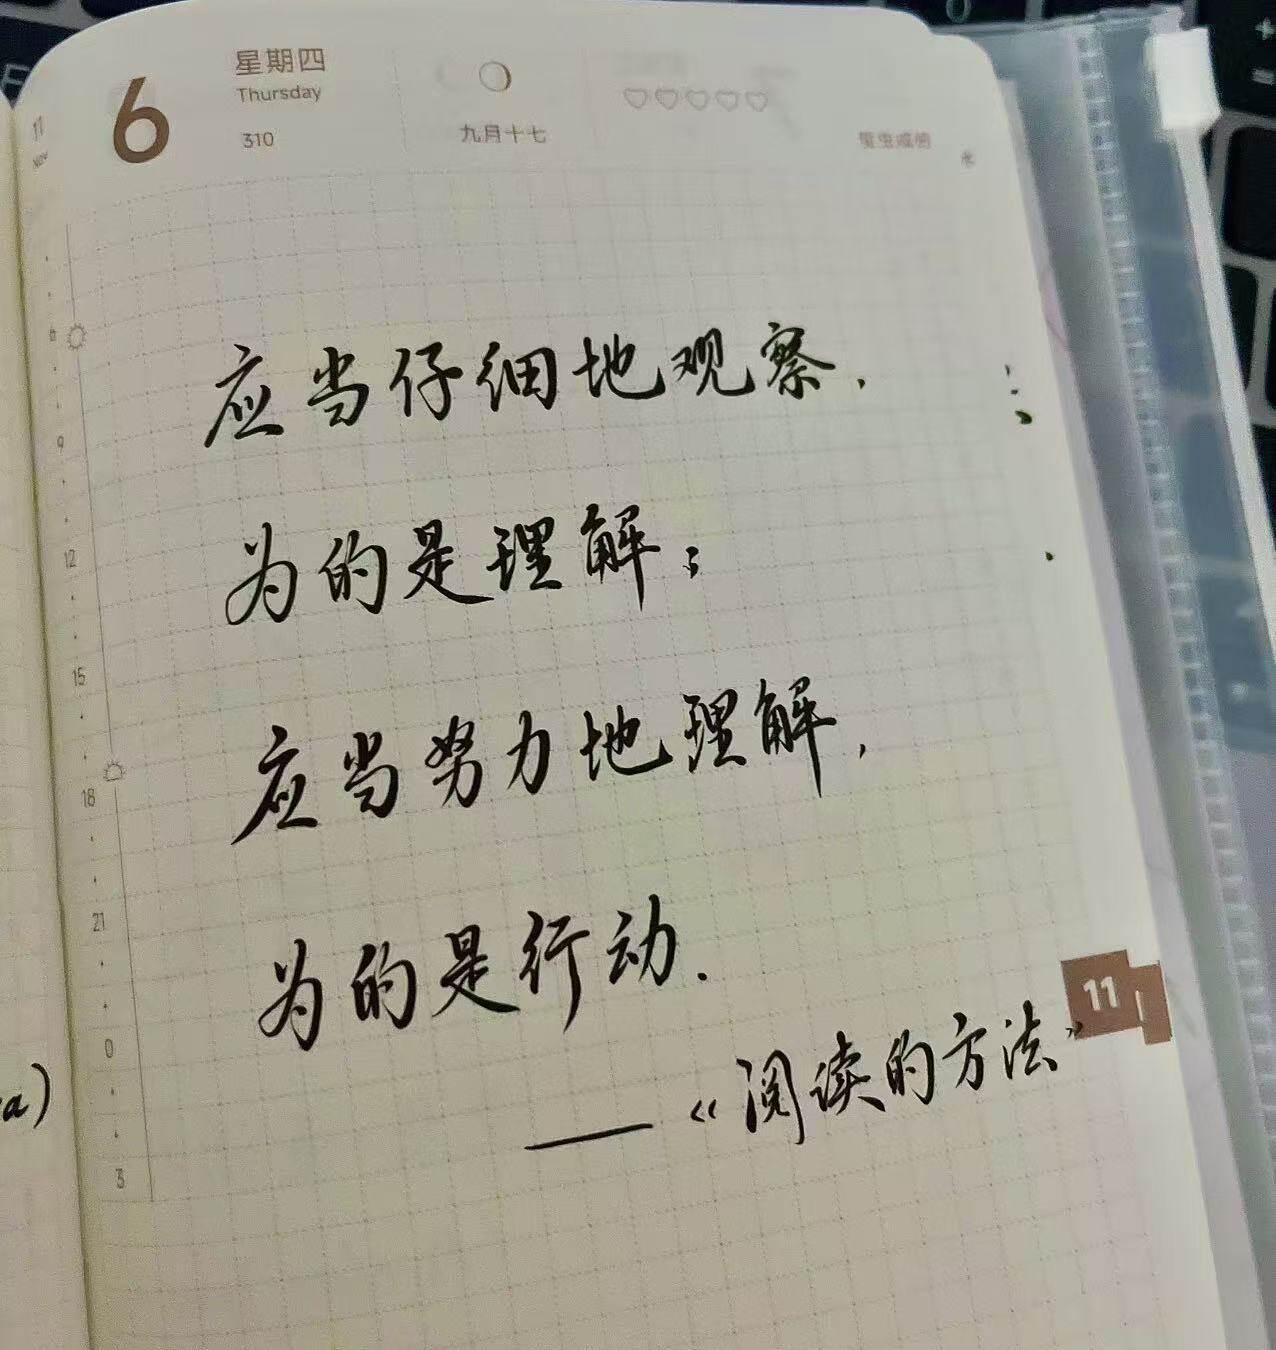 11
Nov
6
星期四
Thursday
310
九月十七
6
9
12
15
18
21
0
3
应当仔细地观察，
为的是理解；
应当努力地理解，
为的是行动.
——《阅读的方法》
11
a)